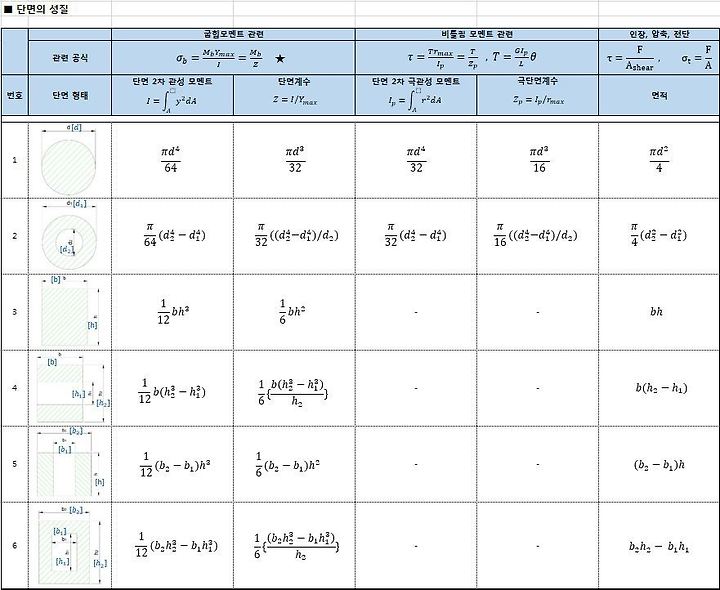 ■ 단면의 성질
굽힘모멘트 관련 비틀림 모멘트 관련 인장, 압축, 전단
관련 공식 σ_b = M_b Y_max / I = M_b / Z ★ τ = T r_max / I_p = T / Z_p , T = G I_p / L θ τ = F / A_shear , σ_t = F / A
번호 단면 형태 단면 2차 관성 모멘트 단면계수 단면 2차 극관성 모멘트 극단면계수 면적
I = ∫_A^□ y²dA Z = I/Y_max I_p = ∫_A^□ r²dA Z_p = I_p/r_max
1 d [d] πd⁴/64 πd³/32 πd⁴/32 πd³/16 πd²/4
2 [d₁] [d₂] π/64 (d₂⁴−d₁⁴) π/32 ((d₂⁴−d₁⁴)/d₂) π/32 (d₂⁴−d₁⁴) π/16 ((d₂⁴−d₁⁴)/d₂) π/4 (d₂²−d₁²)
3 [b] b h [h] 1/12 bh³ 1/6 bh² - - bh
4 b [b] [h₁] h [h₂] 1/12 b(h₂³−h₁³) 1/6 {b(h₂³−h₁³)/h₂} - - b(h₂−h₁)
5 [b₂] [b₁] h [h] 1/12 (b₂−b₁)h³ 1/6 (b₂−b₁)h² - - (b₂−b₁)h
6 [b₂] [b₁] [h₁] [h₂] 1/12 (b₂h₂³−b₁h₁³) 1/6 {(b₂h₂³−b₁h₁³)/h₂} - - b₂h₂−b₁h₁